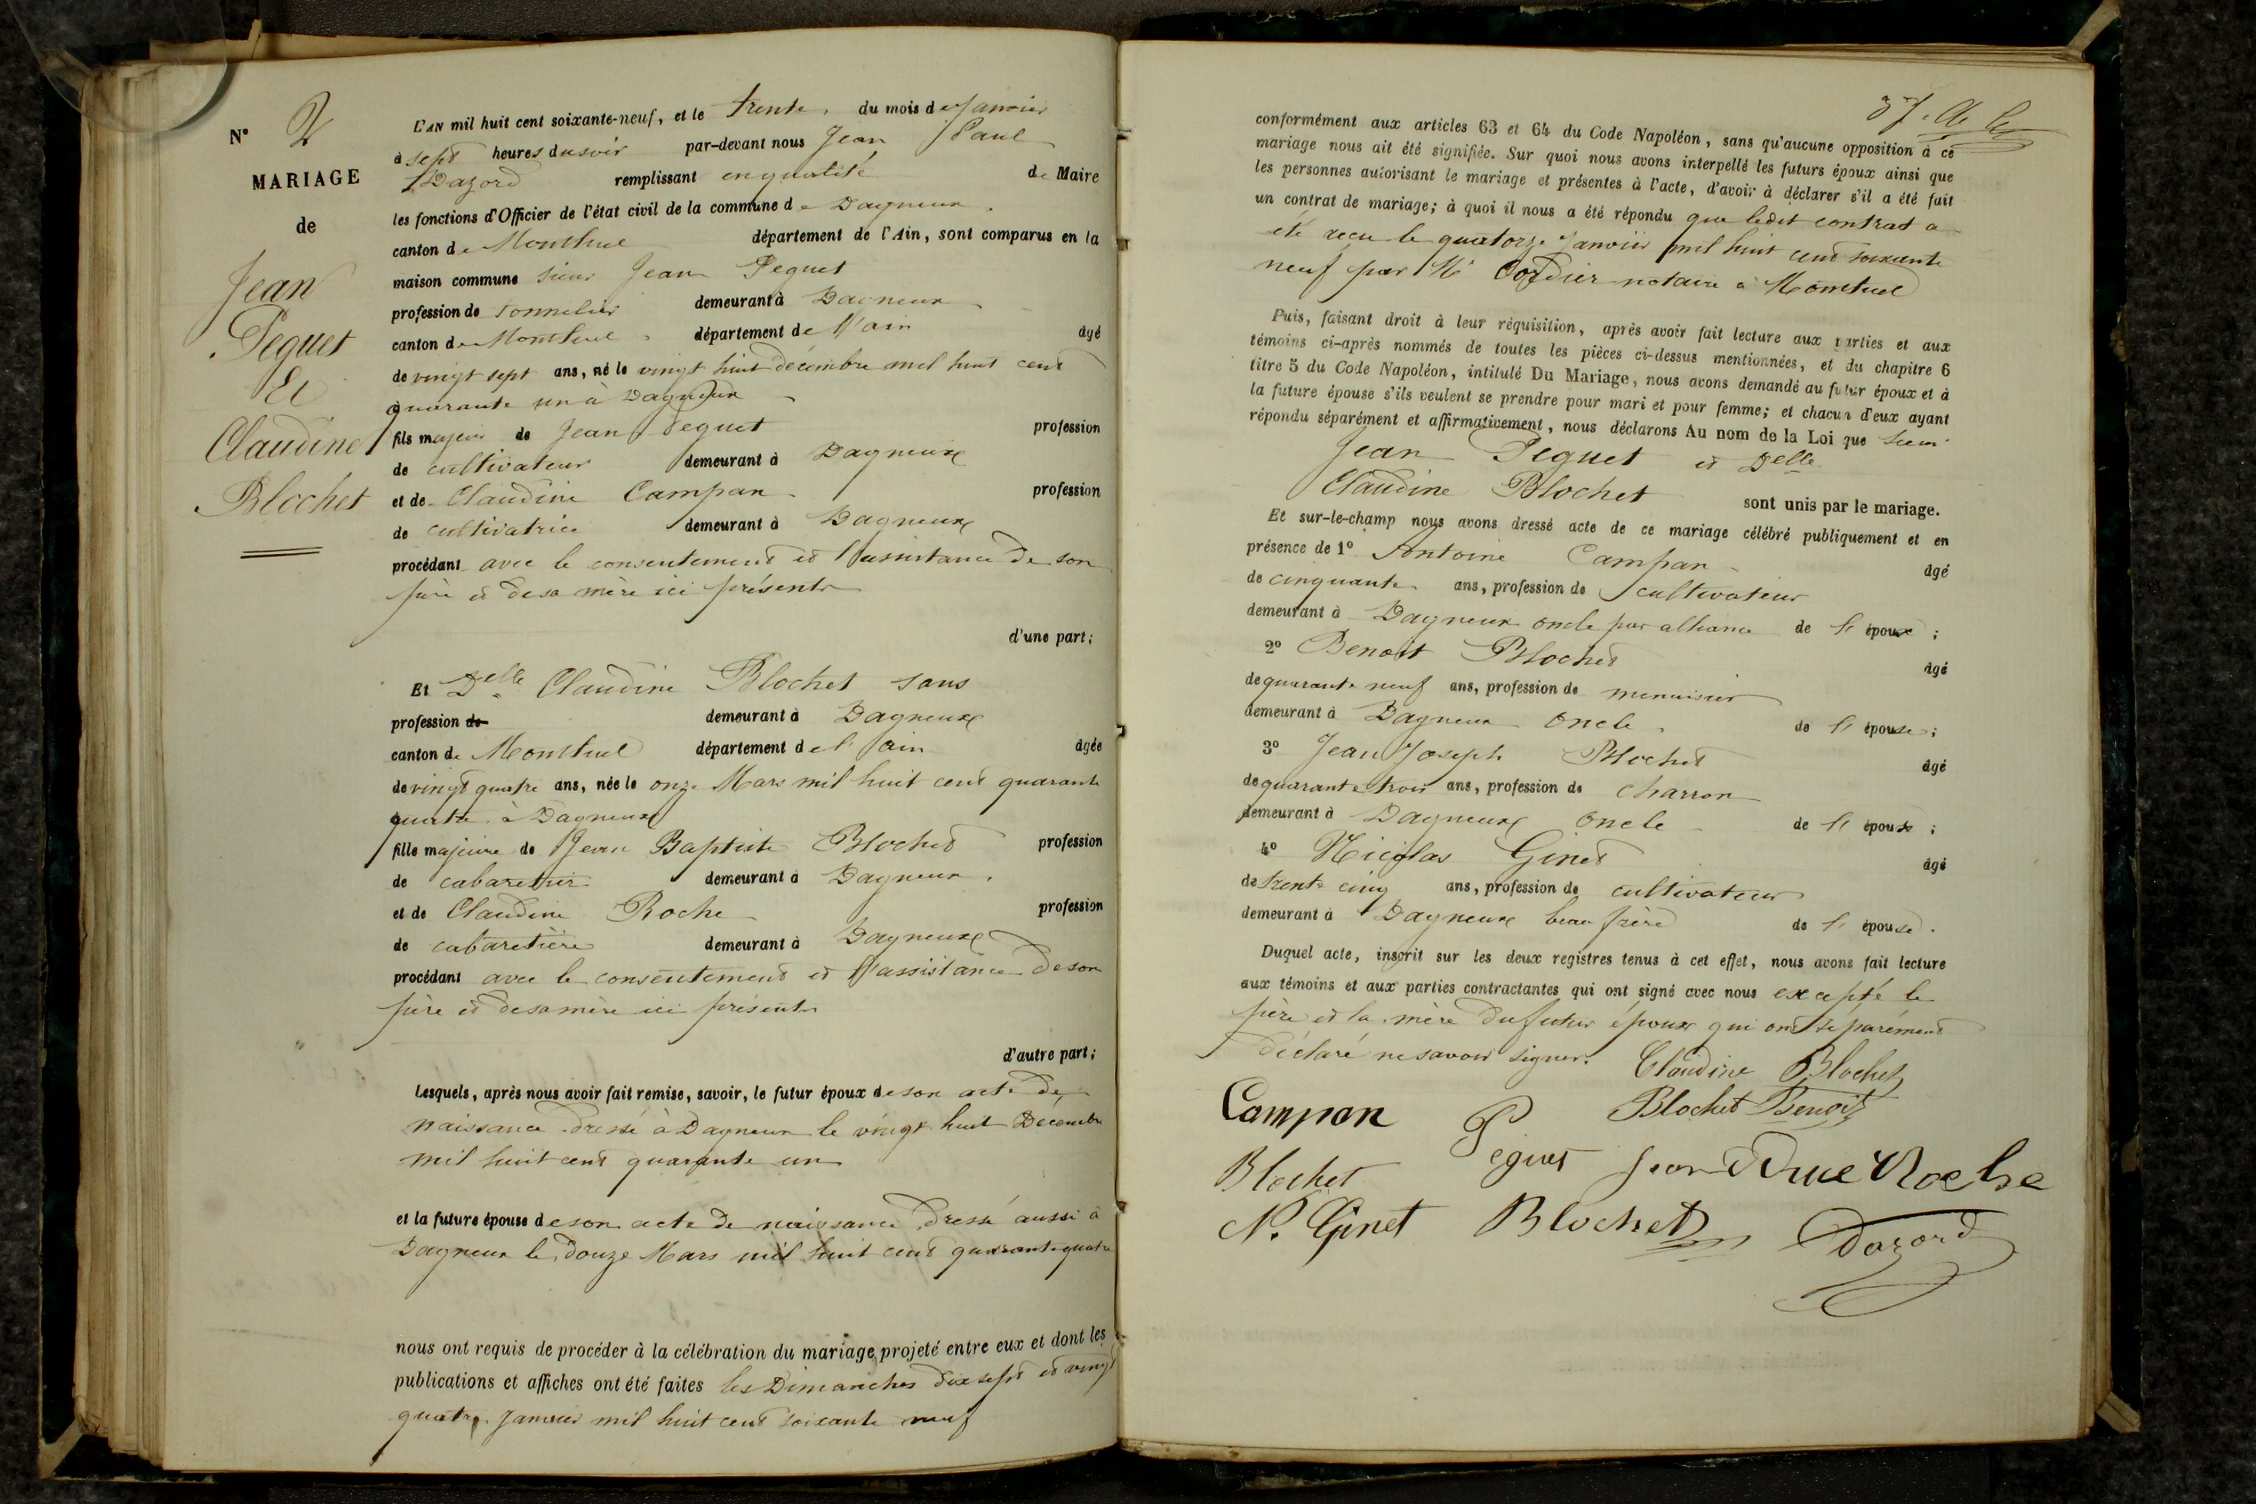 N° 2
MARIAGE
de
Jean
Peguet
Et
Claudine
Blochet
L'AN mil huit cent soixante-neuf, et le trente du mois de Janvier
à sept heures du soir par-devant nous Jean Paul
Dazord remplissant en qualité de Maire
les fonctions d'Officier de l'état civil de la commune de Dagneux
canton de Montluel département de l'Ain, sont comparus en la
maison commune sieur Jean Peguet
profession de tonnelier demeurant à Dagneux
canton de Montluel département de l'ain âgé
de vingt sept ans, né le vingt huit décembre mil huit cent
quarante un à Dagneux
fils majeur de Jean Peguet profession
de cultivateur demeurant à Dagneux
et de Claudine Campan profession
de cultivatrice demeurant à Dagneux
procédant avec le consentement et l'assistance de son
père et de sa mère ici présents
d'une part;
Et Delle Claudine Blochet sans
profession de demeurant à Dagneux
canton de Montluel département de l'ain âgée
de vingt quatre ans, née le onze Mars mil huit cent quarante
quatre à Dagneux
fille majeure de Jean Baptiste Blochet profession
de cabaretier demeurant à Dagneux
et de Claudine Roche profession
de cabaretière demeurant à Dagneux
procédant avec le consentement et l'assistance de son
père et de sa mère ici présents
d'autre part;
Lesquels, après nous avoir fait remise, savoir, le futur époux de son acte de
naissance dressé à Dagneux le vingt huit Décembre
mil huit cent quarante un
et la future épouse de son acte de naissance dressé aussi à
Dagneux le douze Mars mil huit cent quarante quatre
nous ont requis de procéder à la célébration du mariage projeté entre eux et dont les
publications et affiches ont été faites les Dimanches dix sept et vingt
quatre Janvier mil huit cent soixante neuf
conformément aux articles 63 et 64 du Code Napoléon, sans qu'aucune opposition à ce
mariage nous ait été signifiée. Sur quoi nous avons interpellé les futurs époux ainsi que
les personnes autorisant le mariage et présentes à l'acte, d'avoir à déclarer s'il a été fait
un contrat de mariage; à quoi il nous a été répondu que ledit contrat a
été reçu le quatorze Janvier mil huit cent soixante
neuf par Me Cordier notaire à Montluel
Puis, faisant droit à leur réquisition, après avoir fait lecture aux parties et aux
témoins ci-après nommés de toutes les pièces ci-dessus mentionnées, et du chapitre 6
titre 5 du Code Napoléon, intitulé Du Mariage, nous avons demandé au futur époux et à
la future épouse s'ils veulent se prendre pour mari et pour femme; et chacun d'eux ayant
répondu séparément et affirmativement, nous déclarons Au nom de la Loi que sieur
Jean Peguet et Delle
Claudine Blochet sont unis par le mariage.
Et sur-le-champ nous avons dressé acte de ce mariage célébré publiquement et en
présence de 1° Antoine Campan âgé
de cinquante ans, profession de cultivateur
demeurant à Dagneux oncle par alliance de l' époux ;
2° Benoit Blochet âgé
de quarante neuf ans, profession de menuisier
demeurant à Dagneux oncle de l' épouse ;
3° Jean Joseph Blochet âgé
de quarante trois ans, profession de charron
demeurant à Dagneux oncle de l' épouse ;
4° Nicolas Ginet âgé
de trente cinq ans, profession de cultivateur
demeurant à Dagneux beau frère de l' épouse .
Duquel acte, inscrit sur les deux registres tenus à cet effet, nous avons fait lecture
aux témoins et aux parties contractantes qui ont signé avec nous excepté le
père et la mère du futur époux qui ont séparément
déclaré ne savoir signer.
Claudine Blochet
Campan Blochet Benoit
Blochet Péguet Roche
N. Ginet Blochet Dazord